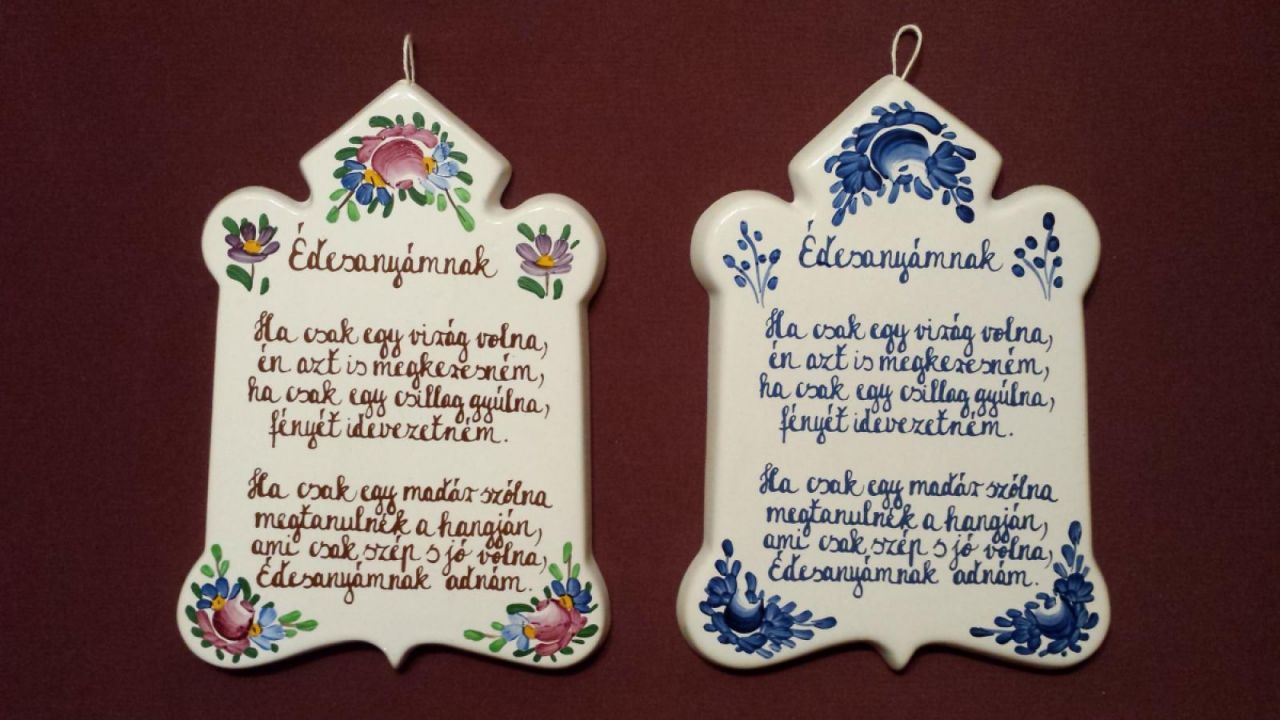 Édesanyámnak
Ha csak egy virág volna,
én azt is megkeresném,
ha csak egy csillag gyúlna,
fényét idevezetném.
Ha csak egy madár szólna
megtanulnék a hangján,
ami csak szép s jó volna,
Édesanyámnak adnám.
Édesanyámnak
Ha csak egy virág volna,
én azt is megkeresném,
ha csak egy csillag gyúlna,
fényét idevezetném.
Ha csak egy madár szólna
megtanulnék a hangján,
ami csak szép s jó volna,
Édesanyámnak adnám.